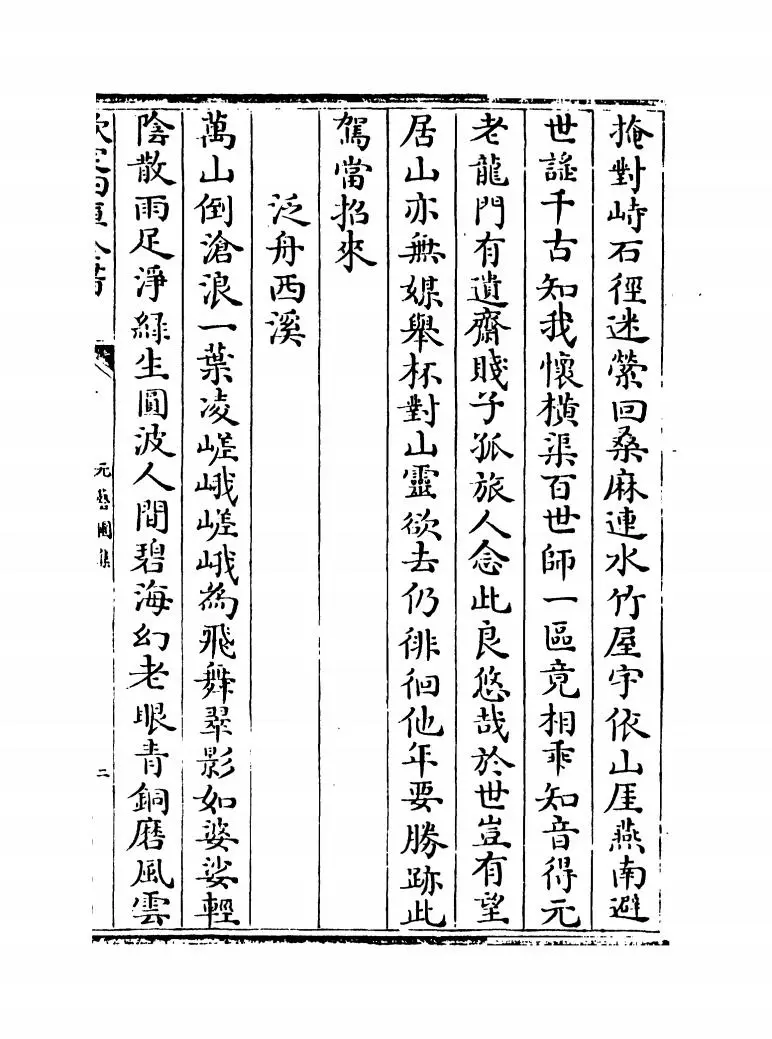 掩對峙石徑迷縈回桑麻連水竹屋宇依山厓燕南避
世謡千古知我懷橫渠百世師一區竟相乖知音得元
老龍門有遺齋賤子孤旅人念此良悠哉於世豈有望
居山亦無媒舉杯對山靈欲去仍徘徊他年要勝跡此
駕當招來
泛舟西溪
萬山倒滄浪一葉凌嵯峨嵯峨為飛舞翠影如婆娑輕
陰散雨足淨緑生圓波人間碧海幻老眼青銅磨風雲
欽定四庫全書
元藝圃集
二